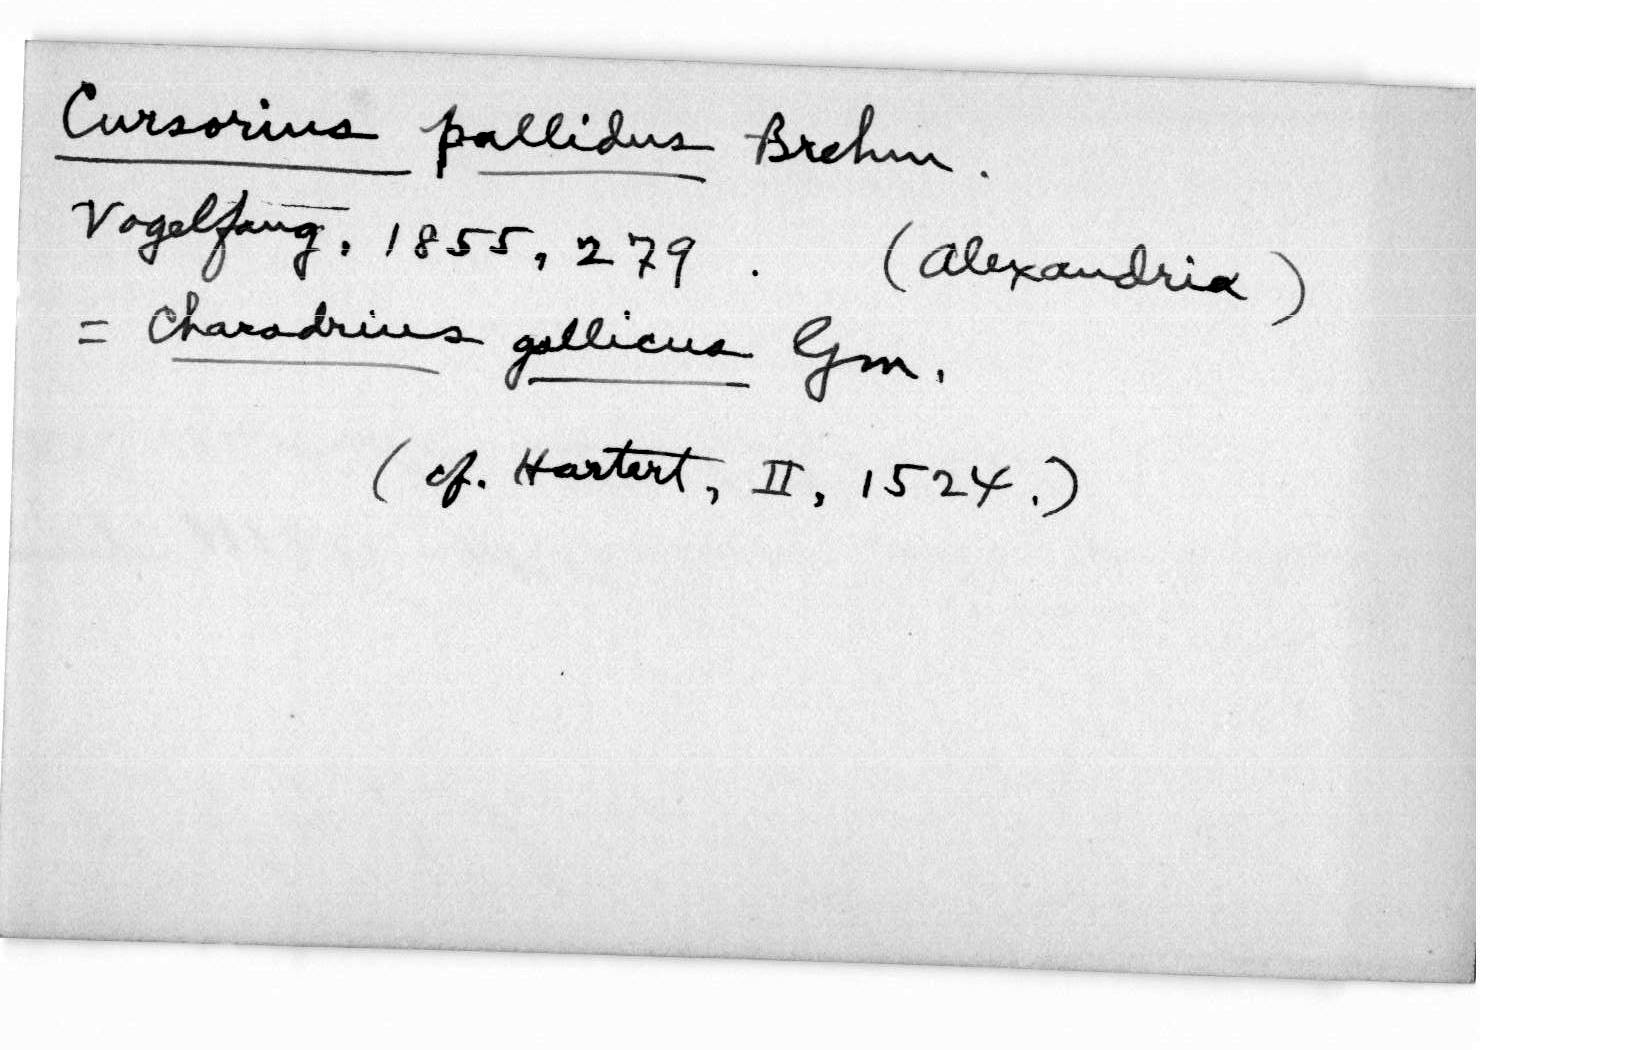 Cursorius pallidus Brehm.
Vogelfang, 1855, 279. (Alexandria)
= Charadrius gallicus Gm.
(cf. Hartert, II, 1524.)